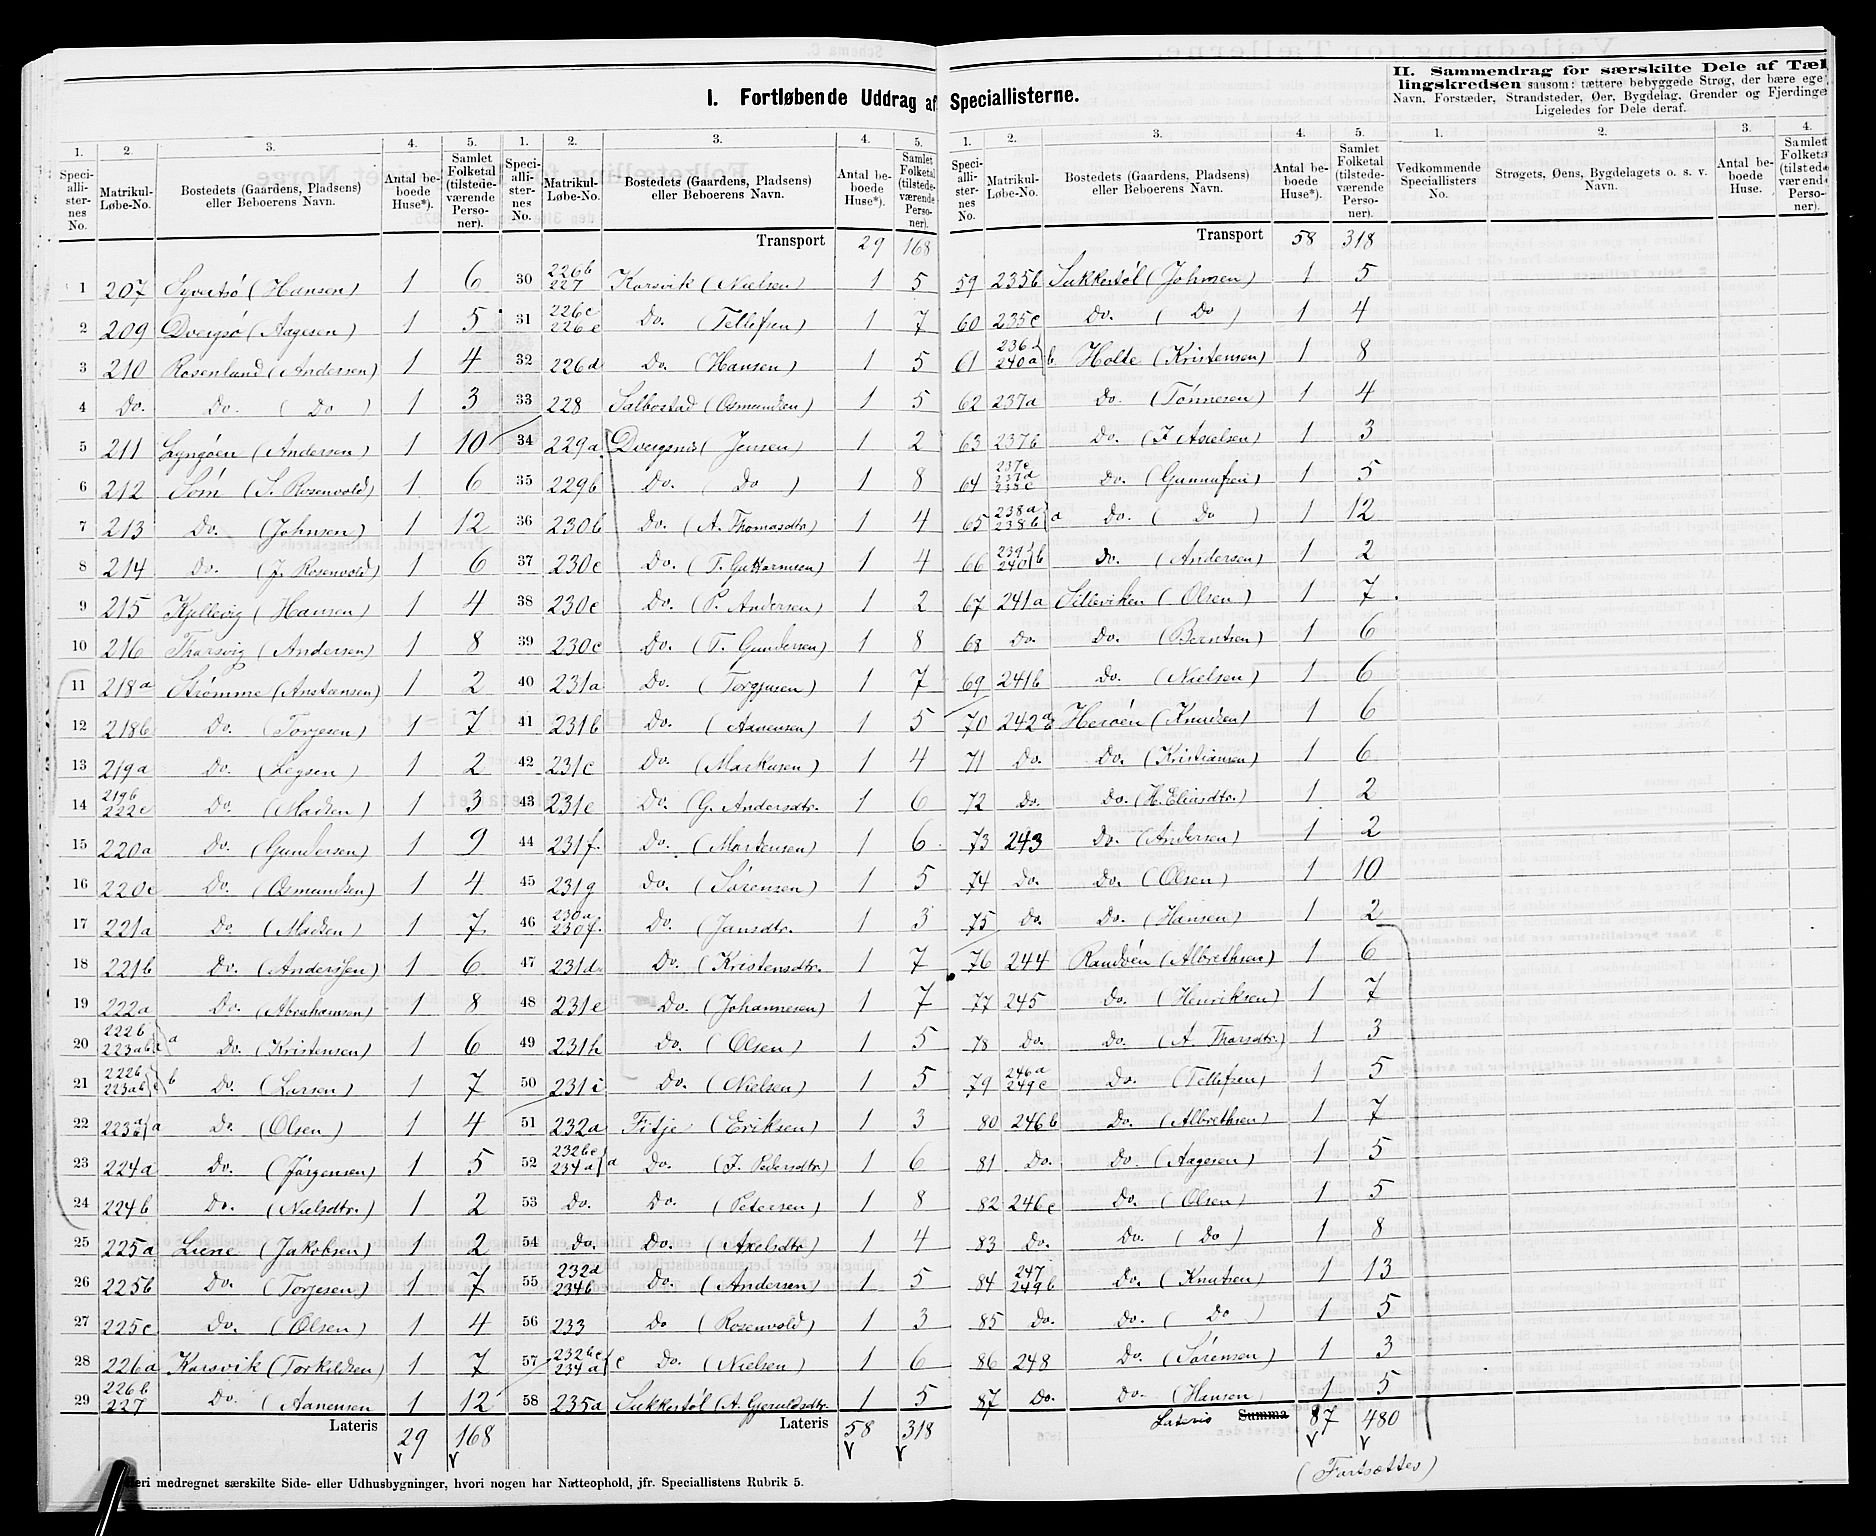 I. Fortløbende Uddrag af Speciallisterne.
II. Sammendrag for særskilte Dele af Tæl
lingskredsen saasom: tættere bebyggede Strøg, der bære ege
Navn, Forstæder, Strandsteder, Øer, Bygdelag, Grender og Fjerdinge
Ligeledes for Dele deraf.
1. 2. 3. 4. 5. 1. 2. 3. 4. 5. 1. 2. 3. 4. 5. 1. 2. 3. 4.
Speci-alli-ster-nes No. Matrikul-Løbe-No. Bostedets (Gaardens, Pladsens) eller Beboerens Navn. Antal be-boede Huse*). Samlet Folketal (tilstede-værende Perso-ner).
Speci-alli-ster-nes No. Matrikul-Løbe-No. Bostedets (Gaardens, Pladsens) eller Beboerens Navn. Antal be-boede Huse*). Samlet Folketal (tilstede-værende Perso-ner).
Speci-alli-ster-nes No. Matrikul-Løbe-No. Bostedets (Gaardens, Pladsens) eller Beboerens Navn. Antal be-boede Huse*). Samlet Folketal (tilstede-værende Perso-ner).
Vedkommende Speciallisters No. Strøgets, Øens, Bygdelagets o. s. v. Navn. Antal be-boede Huse. Samlet Folketa (tilstede værende Perso-ner).
1 207 Syvertsø (Hansen) 1 6
2 209 Dvergsø (Aagesen) 1 5
3 210 Rosenlund (Andersen) 1 4
4 Do. Do. (Do) 1 3
5 211 Lyngøen (Andersen) 1 10
6 212 Som (S. Rosenvold) 1 6
7 213 Do. (Johnsen) 1 12
8 214 Do. (J. Rosenvold) 1 6
9 215 Kjellevig (Hansen) 1 4
10 216 Tharsvig (Andersen) 1 8
11 218a Strømme (Anstensen) 1 2
12 218b Do. (Torjesen) 1 7
13 219a Do. (Legsen) 1 2
14 219b 222c Do. (Madsen) 1 3
15 220a Do. (Gundersen) 1 9
16 220c Do. (Osmundsen) 1 4
17 221a Do. (Madsen) 1 7
18 221b Do. (Andersen) 1 6
19 222a Do. (Abrahamsen) 1 8
20 222b 223ab a Do. (Kristensen) 1 6
21 222b 223ab b Do. (Larsen) 1 7
22 223 a Do. (Olsen) 1 4
23 224a Do. (Jørgensen) 1 5
24 224b Do. (Nielsdtr.) 1 2
25 225a Liene (Jakobsen) 1 2
26 225b Do. (Torjesen) 1 7
27 225c Do. (Olsen) 1 4
28 226a Korsvik (Torkildsen) 1 7
29 226b 227 Do. (Aanensen 1 12
Lateris 29 168
Transport 29 168
30 226b 227 Korsvik (Nielsen) 1 5
31 226c 226e Do. (Tellefsen) 1 7
32 226d Do. (Hansen) 1 5
33 228 Salbostad (Osmundsen) 1 5
34 229a Dvergsnes (Jensen) 1 2
35 229b Do. (Do) 1 8
36 230b Do. (A. Thomasdtr) 1 4
37 230c Do. (T. Guttormsen) 1 4
38 230e Do. (P. Andersen) 1 2
39 230e Do. (T. Gundersen) 1 8
40 231a Do. (Torgjusen) 1 7
41 231b Do. (Aanensen) 1 5
42 231c Do. (Markusen) 1 4
43 231e Do. (G. Andersdtr. 1 6
44 231f. Do. (Mortensen) 1 6
45 231g Do. (Sørensen) 1 5
46 230a 230f. Do. (Jansdtr. 1 3
47 231d Do. (Kristensdtr. 1 7
48 231e Do. (Johannesen) 1 7
49 231h Do. (Olsen) 1 5
50 231i Do. (Nielsen) 1 5
51 232a Fitje (Eriksen) 1 3
52 232bc 234a a Do. (J. Pedersdtr) 1 6
53 Do. Do. (Petersen) 1 8
54 Do. Do. (Axelsdtr) 1 4
55 232d 234b Do. (Andersen) 1 5
56 233 Do (Rosenvold) 1 3
57 232bc 234a c Do. (Nielsen) 1 6
58 235a Sukkestøl (A. Gjeruldsdtr. 1 5
Lateris 58 318
Transport 58 318
59 235b Sukkestøl (Johnsen) 1 5
60 235c Do. (Do) 1 4
61 236 240a b Holte (Kristensen) 1 8
62 237a Do. (Tønnesen) 1 4
63 237b Do. (J. Axelsen) 1 3
64 237c 237d Do. 1 5
65 238a 238b a Do. (Do) 1 12
66 239 240 b Do. (Andersen) 1 2
67 241a Stilleviken (Olsen) 1 7
68 Do. Do. (Berntsen) 1 6
69 241b Do. (Nielsen) 1 6
70 242 Herøen (Knudsen) 1 6
71 Do. Do. (Kristiansen) 1 6
72 Do. Do. (H. Eliasdtr.) 1 2
73 243 Do. (Andersen) 1 2
74 Do. Do. (Olsen) 1 10
75 Do. Do. (Hansen) 1 2
76 244 Randøen (Albrethsen) 1 6
77 245 Do. (Henriksen) 1 7
78 Do. Do. (A. Thorsdtr.) 1 3
79 246a 249c Do. (Tellefsen) 1 5
80 246b Do. (Albrethsen) 1 7
81 Do. Do. (Aagesen) 1 5
82 246c Do. (Olsen) 1 5
83 Do. Do. (Do) 1 8
84 247 249b Do. (Knutsen) 1 13
85 Do. Do. (Do) 1 5
86 248 Do. (Sørensen) 1 3
87 Do. Do. (Hansen) 1 5
Lateris Summa 87 480
(Fortsættes)
eri medregnet særskilte Side- eller Udhusbygninger, hvori nogen har Natteophold, jfr. Speciallistens Rubrik 5.